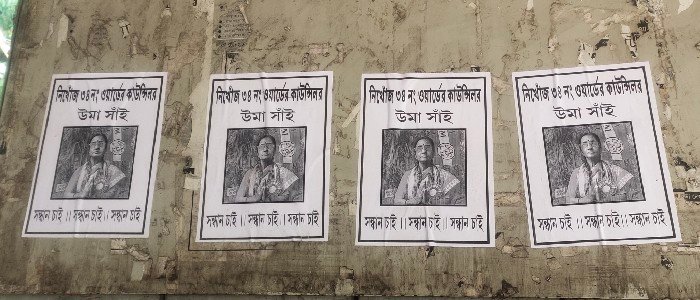 নিখোঁজ ৩৪ নং ওয়ার্ডের কাউন্সিলর
উমা সাঁই
সন্ধান চাই ।। সন্ধান চাই ।। সন্ধান চাই
নিখোঁজ ৩৪ নং ওয়ার্ডের কাউন্সিলর
উমা সাঁই
সন্ধান চাই ।। সন্ধান চাই ।। সন্ধান চাই
নিখোঁজ ৩৪ নং ওয়ার্ডের কাউন্সিলর
উমা সাঁই
সন্ধান চাই ।। সন্ধান চাই ।। সন্ধান চাই
নিখোঁজ ৩৪ নং ওয়ার্ডের কাউন্সিলর
উমা সাঁই
সন্ধান চাই ।। সন্ধান চাই ।। সন্ধান চাই